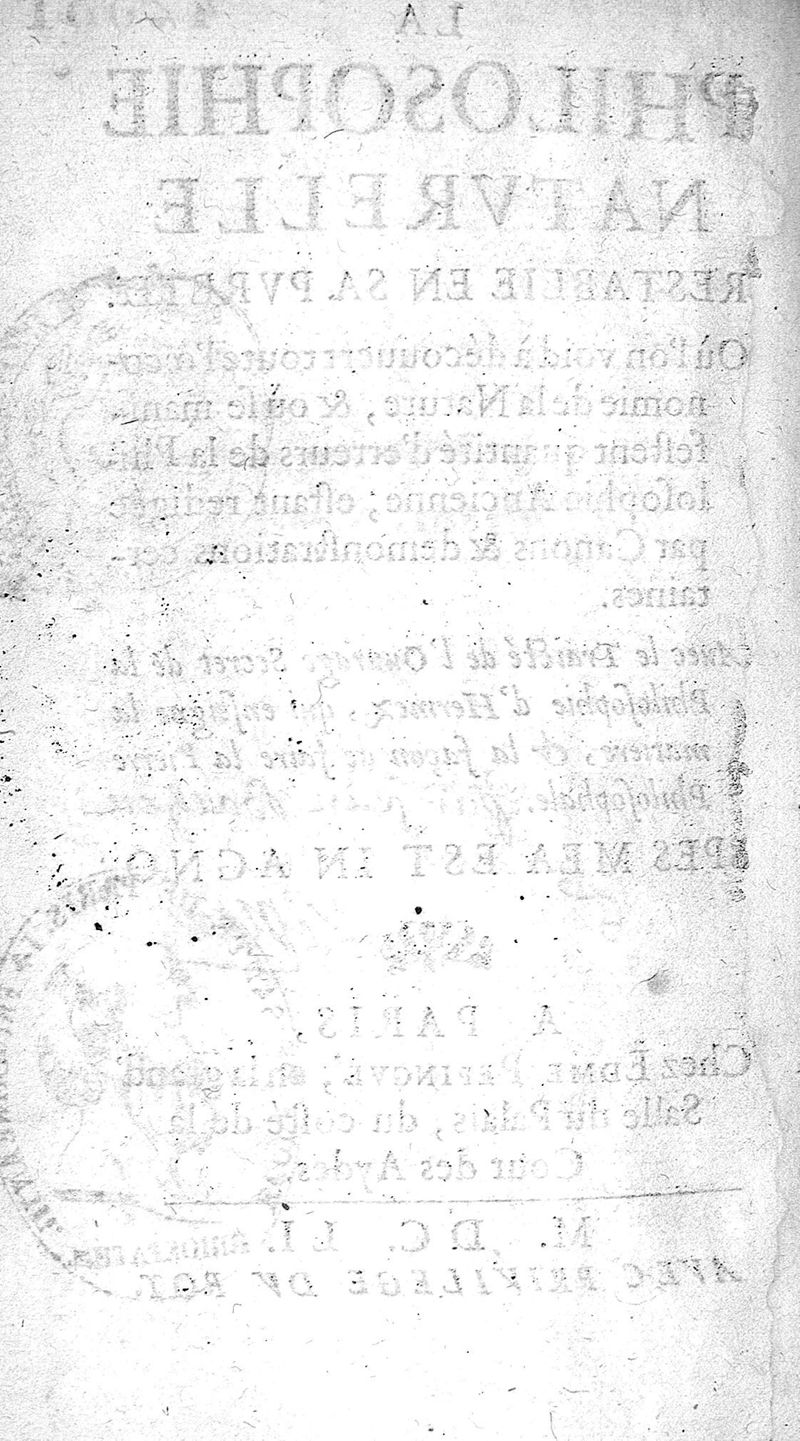 LA
PHILOSOPHIE
NATVRELLE
RESTABLIE EN SA PVRETE'.
Où l'on void à découuert toute l'œco-
nomie de la Nature, & où se mani-
festent quantité d'erreurs de la Phi-
losophie Ancienne, estant redigée
par Canons & demonstrations cer-
taines.
Auec le Traicté de l'Ouurage Secret de la
Philosophie d'Hermez, qui enseigne la
matiere, & la façon de faire la Pierre
Philosophale.
SPES MEA EST IN AGNO
A PARIS,
Chez EDME PEPINGVE', en la grand'
Salle du Palais, du costé de la
Cour des Aydes.
M. DC. LI.
AVEC PRIVILEGE DV ROY.